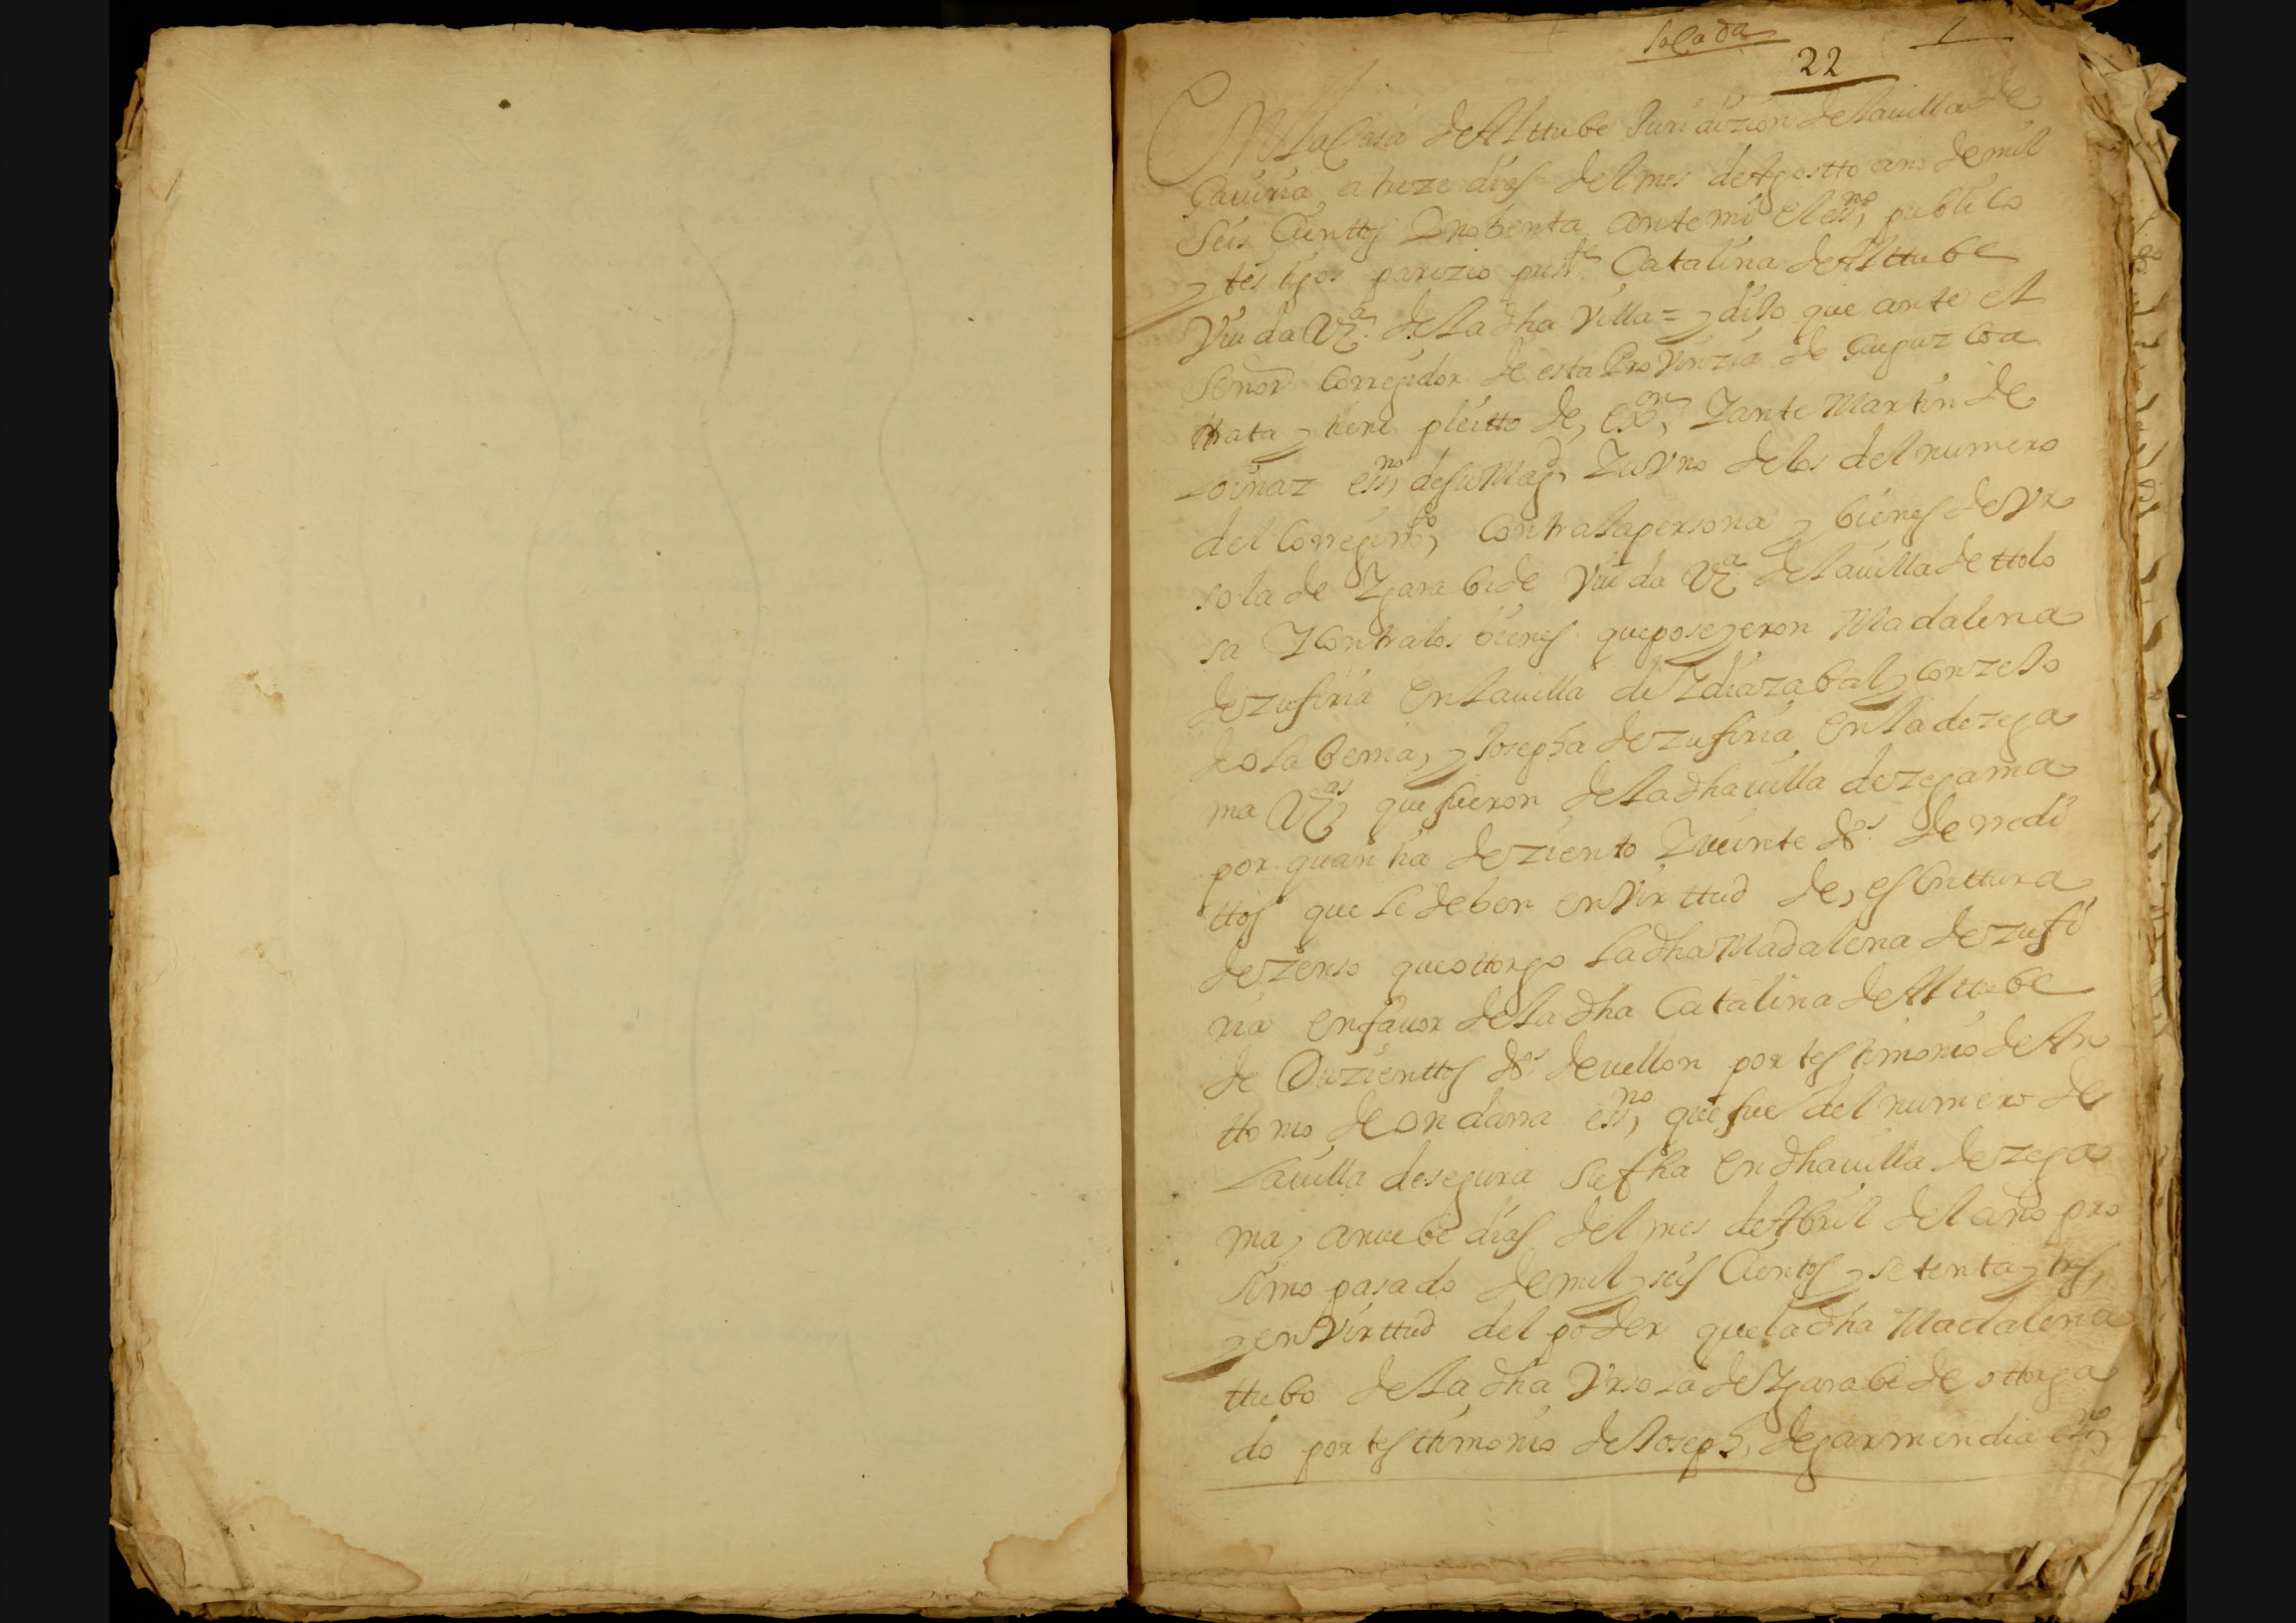 sacada
1
22
En la Casa de Alttube Juridizion de la villa de
Gaviria a treze dias del mes de Agostto año de mil
Seis Cienttos y nobenta ante mi el essno publico
y testigos parezio preste Catalina de Alttube
Viuda Vza de la dha Villa = y dijo que ante el
Señor Corregidor de esta Provinzia de Guipuzcoa
trata y tiene pleitto de exon y ante Martin de
Loinaz essno de su Magd y uno de los del numero
del Corregimto, contra la persona y bienes de Vr
sola de Ygarabide Viuda Vza de la villa de ttolo
sa y contra los bienes que poseyeron Madalena
de zufiria en la villa de Ydiazabal y conzejo
de olaberria, y Josepha de zufiria en la de zega
ma Vzas que fueron de la dha villa de zegama
por quantia de ziento y veinte ds de redi
ttos que le deben en virttud de escrittura
de zenso que ottorgo la dha Madalena de zufi
ria en favor de la dha Catalina de Alttube
de Duzienttos ds de vellon por testimonio de An
ttonio de ondarra essno que fue del numero de
la villa de segura su fha en dha villa de zega
ma, a nuebe dias del mes de Abril del año pro
simo pasado de mil y seis Cientos y setenta y tres,
y en virttud del poder que la dha Madalena
ttubo de la dha Vrsola de Ygarabide ottorga
do por testtimonio de Joseph de garmendia essno